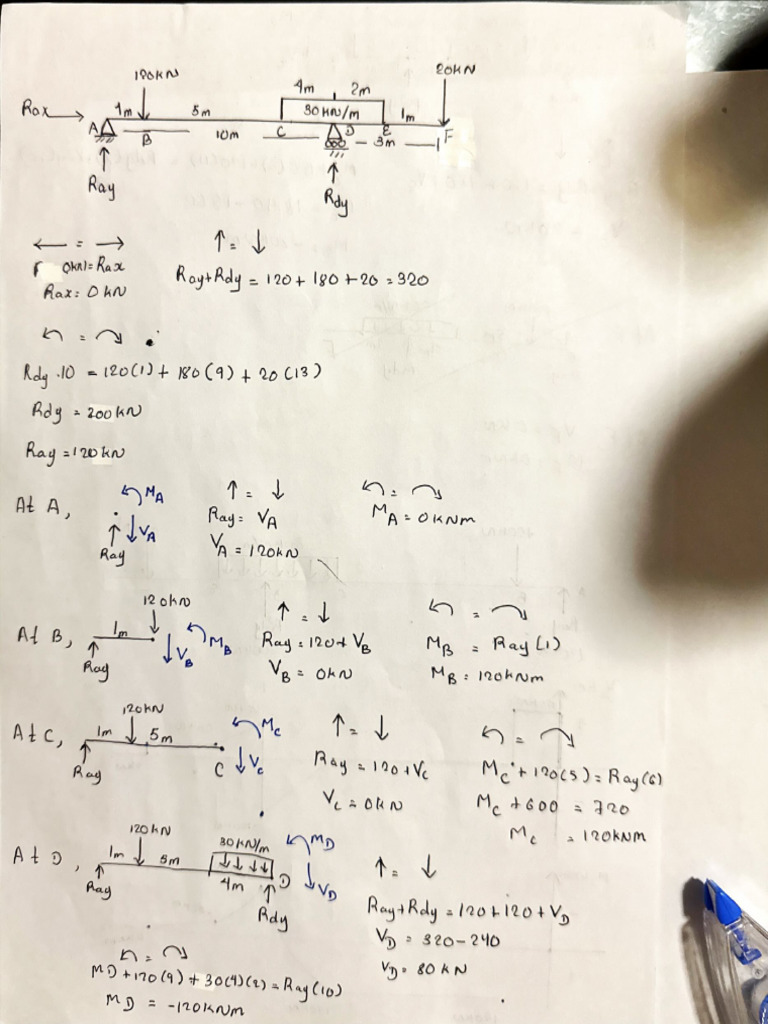 120KN 4m 2m 20KN
Rax 1m 5m 30 KN/m 1m
A B 10m C D E 3m F
Ray Rdy
← = → ↑ = ↓
0kN = Rax Ray+Rdy = 120 + 180 + 20 = 320
Rax = 0 kN
↶ = ↷
Rdy . 10 = 120(1) + 180(9) + 20(13)
Rdy = 200 kN
Ray = 120 kN
At A, MA ↑ = ↓ ↶ = ↷
VA Ray = VA MA = 0 kNm
Ray VA = 120kN
120kN ↑ = ↓ ↶ = ↷
At B, 1m VB MB Ray = 120 + VB MB = Ray (1)
Ray VB = 0kN MB = 120kNm
120kN Mc ↑ = ↓ ↶ = ↷
At C, 1m 5m Ray = 120 + Vc Mc + 120(5) = Ray(6)
Ray C Vc Vc = 0kN Mc + 600 = 720
Mc = 120kNm
120kN 30kN/m MD ↑ = ↓
At D, 1m 5m D
Ray 4m VD Ray + Rdy = 120 + 120 + VD
Rdy VD = 320 - 240
↶ = ↷ VD = 80 kN
MD + 120(9) + 30(4)(2) = Ray(10)
MD = -120kNm